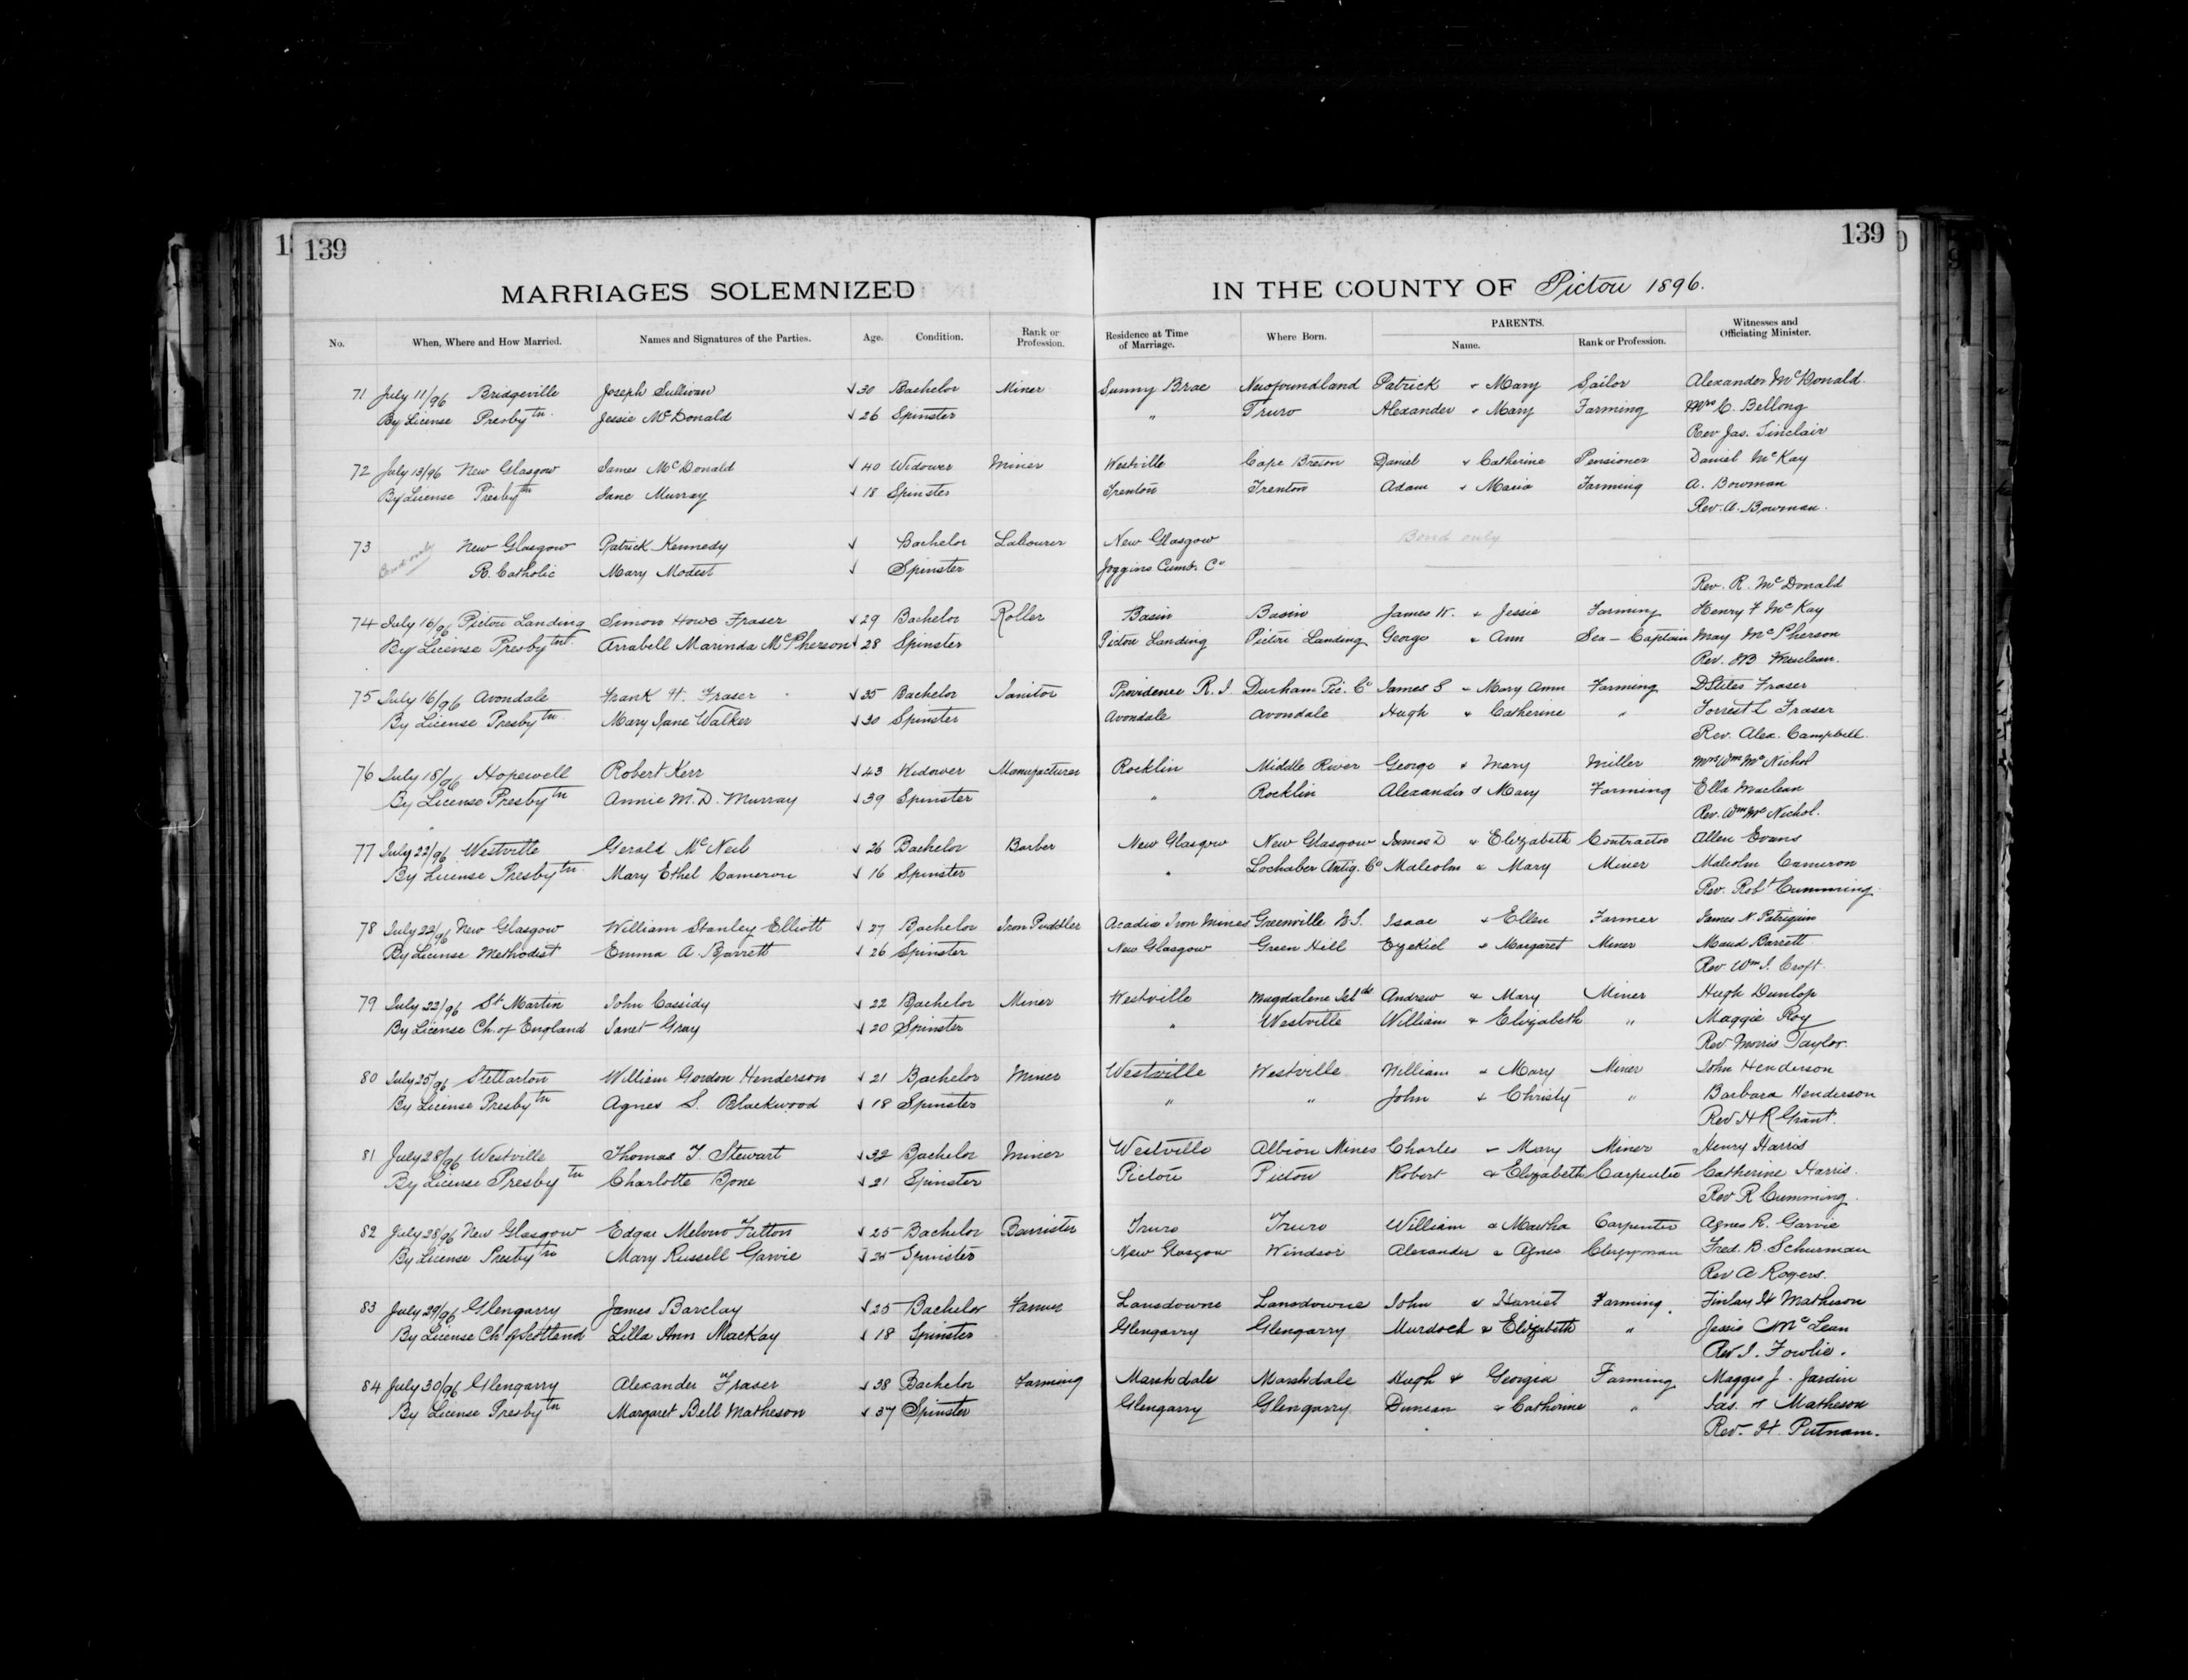 1 139 139 0
MARRIAGES SOLEMNIZED IN THE COUNTY OF Pictou 1896.
No. When, Where and How Married. Names and Signatures of the Parties. Age. Condition. Rank or Profession. Residence at Time of Marriage. Where Born. PARENTS. Name. Rank or Profession. Witnesses and Officiating Minister.
71 July 11/96 Bridgeville Joseph Sullivan √ 30 Bachelor Miner Sunny Brae Newfoundland Patrick & Mary Sailor Alexander McDonald
By License Presbytn. Jessie McDonald √ 26 Spinster " Truro Alexander & Mary Farming Mrs C. Bellong
Rev Jas. Sinclair
72 July 13/96 New Glasgow James McDonald √ 40 Widower Miner Westville Cape Breton Daniel & Catherine Pensioner Daniel McKay
By License Presbytn Jane Murray √ 18 Spinster Trenton Trenton Adam & Maria Farming A. Bowman
Rev. A. Bowman.
73 Bond only New Glasgow Patrick Kennedy √ Bachelor Labourer New Glasgow Bond only
R. Catholic Mary Modest √ Spinster Joggins Cumb. Co
Rev. R. McDonald
74 July 16/96 Pictou Landing Simon Howe Fraser √ 29 Bachelor Roller Basin Basin James W. & Jessie Farming Henry F McKay
By License Presbytn. Arrabell Marinda McPherson √ 28 Spinster Pictou Landing Pictou Landing George & Ann Sea-Captain May McPherson
Rev. Maclean.
75 July 16/96 Avondale Frank H. Fraser √ 35 Bachelor Janitor Providence R.I. Durham Pic. Co James S & Mary Ann Farming D Stiles Fraser
By License Presbytn. Mary Jane Walker √ 30 Spinster Avondale Avondale Hugh & Catherine " Forrest L Fraser
Rev. Alex. Campbell.
76 July 18/96 Hopewell Robert Kerr √ 43 Widower Manufacturer Rocklin Middle River George & Mary Miller Mrs Wm McNichol
By License Presbytn Annie M.D. Murray √ 39 Spinster " Rocklin Alexander & Mary Farming Ella Maclean
Rev. Wm McNichol.
77 July 22/96 Westville Gerald McNeil √ 26 Bachelor Barber New Glasgow New Glasgow James D & Elizabeth Contractor Allen Evans
By License Presbytn Mary Ethel Cameron √ 16 Spinster " Lochaber Antig. Co Malcolm & Mary Miner Malcolm Cameron
Rev. Robt Cumming.
78 July 22/96 New Glasgow William Stanley Elliott √ 27 Bachelor Iron Puddler Acadia Iron Mines Greenville N.S. Isaac & Ellen Farmer James N. Patriquin
By License Methodist Emma A. Barrett √ 26 Spinster New Glasgow Green Hill Ezekiel & Margaret Miner Maud Barrett
Rev Wm I. Croft.
79 July 22/96 St Martin John Cassidy √ 22 Bachelor Miner Westville Magdalene Islds Andrew & Mary Miner Hugh Dunlop
By License Ch. of England Janet Gray √ 20 Spinster " Westville William & Elizabeth " Maggie Roy
Rev Morris Taylor.
80 July 25/96 Stellarton William Gordon Henderson √ 21 Bachelor Miner Westville Westville William & Mary Miner John Henderson
By License Presbytn Agnes S. Blackwood √ 18 Spinster " " John & Christy " Barbara Henderson
Rev H R Grant.
81 July 28/96 Westville Thomas T. Stewart √ 32 Bachelor Miner Westville Albion Mines Charles & Mary Miner Henry Harris
By License Presbytn Charlotte Bone √ 21 Spinster Pictou Pictou Robert & Elizabeth Carpenter Catherine Harris.
Rev R Cumming.
82 July 28/96 New Glasgow Edgar Melvin Fulton √ 25 Bachelor Barrister Truro Truro William & Martha Carpenter Agnes R. Garvie
By License Presbytn Mary Russell Garvie √ 25 Spinster New Glasgow Windsor Alexander & Agnes Clergyman Fred. B. Schurman
Rev A Rogers.
83 July 29/96 Glengarry James Barclay √ 25 Bachelor Farmer Lansdowne Lansdowne John & Harriet Farming. Finlay H Matheson
By License Ch of Scotland Lilla Ann MacKay √ 18 Spinster Glengarry Glengarry Murdoch & Elizabeth " Jessie C McLean
Rev J. Fowlie.
84 July 30/96 Glengarry Alexander Fraser √ 38 Bachelor Farming Marshdale Marshdale Hugh & Georgia Farming Maggie J. Jardin
By License Presbytn Margaret Bell Matheson √ 37 Spinster Glengarry Glengarry Duncan & Catherine " Jas. Matheson
Rev. H. Putnam.